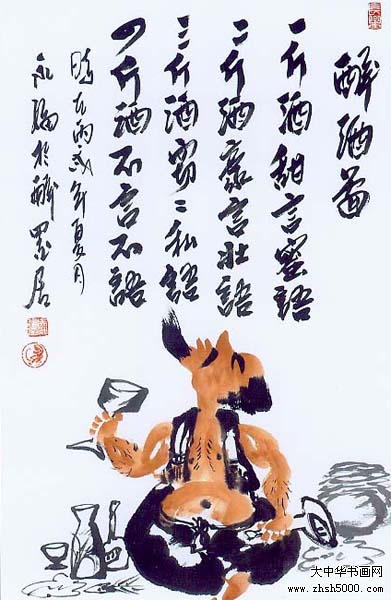 醉酒图
一斤酒甜言蜜語
二斤酒豪言壮語
三斤酒窃〻私語
四斤酒不言不語
時在丙戌年夏月
永編於醉墨居
大中华书画网
www.zhsh5000.com